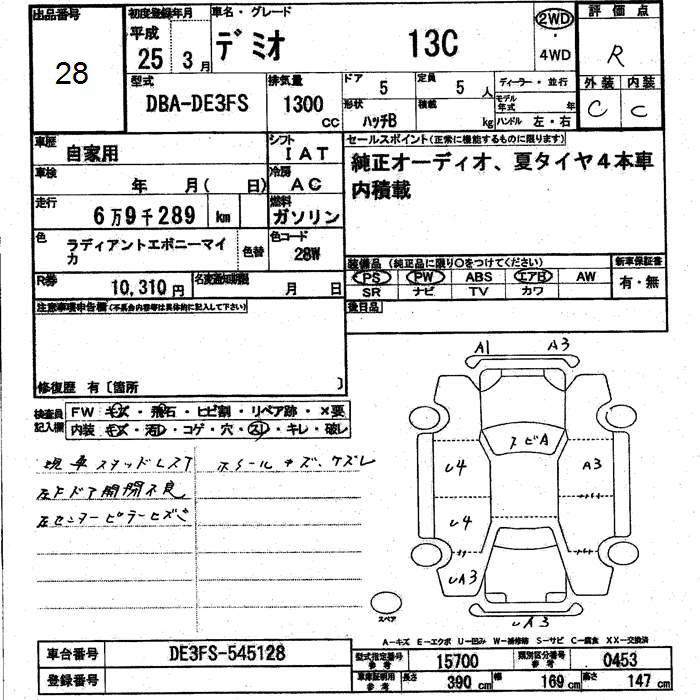 出品番号 初度登録年月 車名・グレード 2WD 評価点
28 平成 25 3月 デミオ 13C 4WD R
型式 排気量 ドア 定員 ディーラー・並行 外装 内装
DBA-DE3FS 1300 CC 5 5人 モデル年式 年 C C
形状 ハッチB 積載 kg ハンドル 左・右
車歴 自家用 シフト IAT セールスポイント(正常に機能するものに限ります)
車検 年 月( 日) 冷房 AC 純正オーディオ、夏タイヤ4本車
内積載
走行 6万9千289 km 燃料 ガソリン
色 ラディアントエボニーマイ
カ 色替 色コード 28W
装備品(純正品に限り○をつけてください) 新車保証書
PS PW ABS エアB AW 有・無
SR ナビ TV カワ
R券 10,310円 名変通知期限 月 日
注意事項申告欄(不具合内容等は具体的に記入して下さい) 後日品
修復歴 有〔箇所 〕
検査員記入欄 FW キズ・飛石・ヒビ割・リペア跡・×要
内装 キズ・汚レ・コゲ・穴・スレ・キレ・破レ
現車スタッドレスT ホイールキズ、ケズレ
左Fドア開閉不良
左センターピラーヒズミ
A1 A3
トビA
U4 A3
U4
UA3
UA3
スペア
A-キズ E-エクボ U-凹み W-補修跡 S-サビ C-腐食 XX-交換済
車台番号 DE3FS-545128 型式指定番号 参考 15700 類別区分番号 参考 0453
登録番号 車庫証明用 参考 長さ 390 cm 幅 169 cm 高さ 147 cm